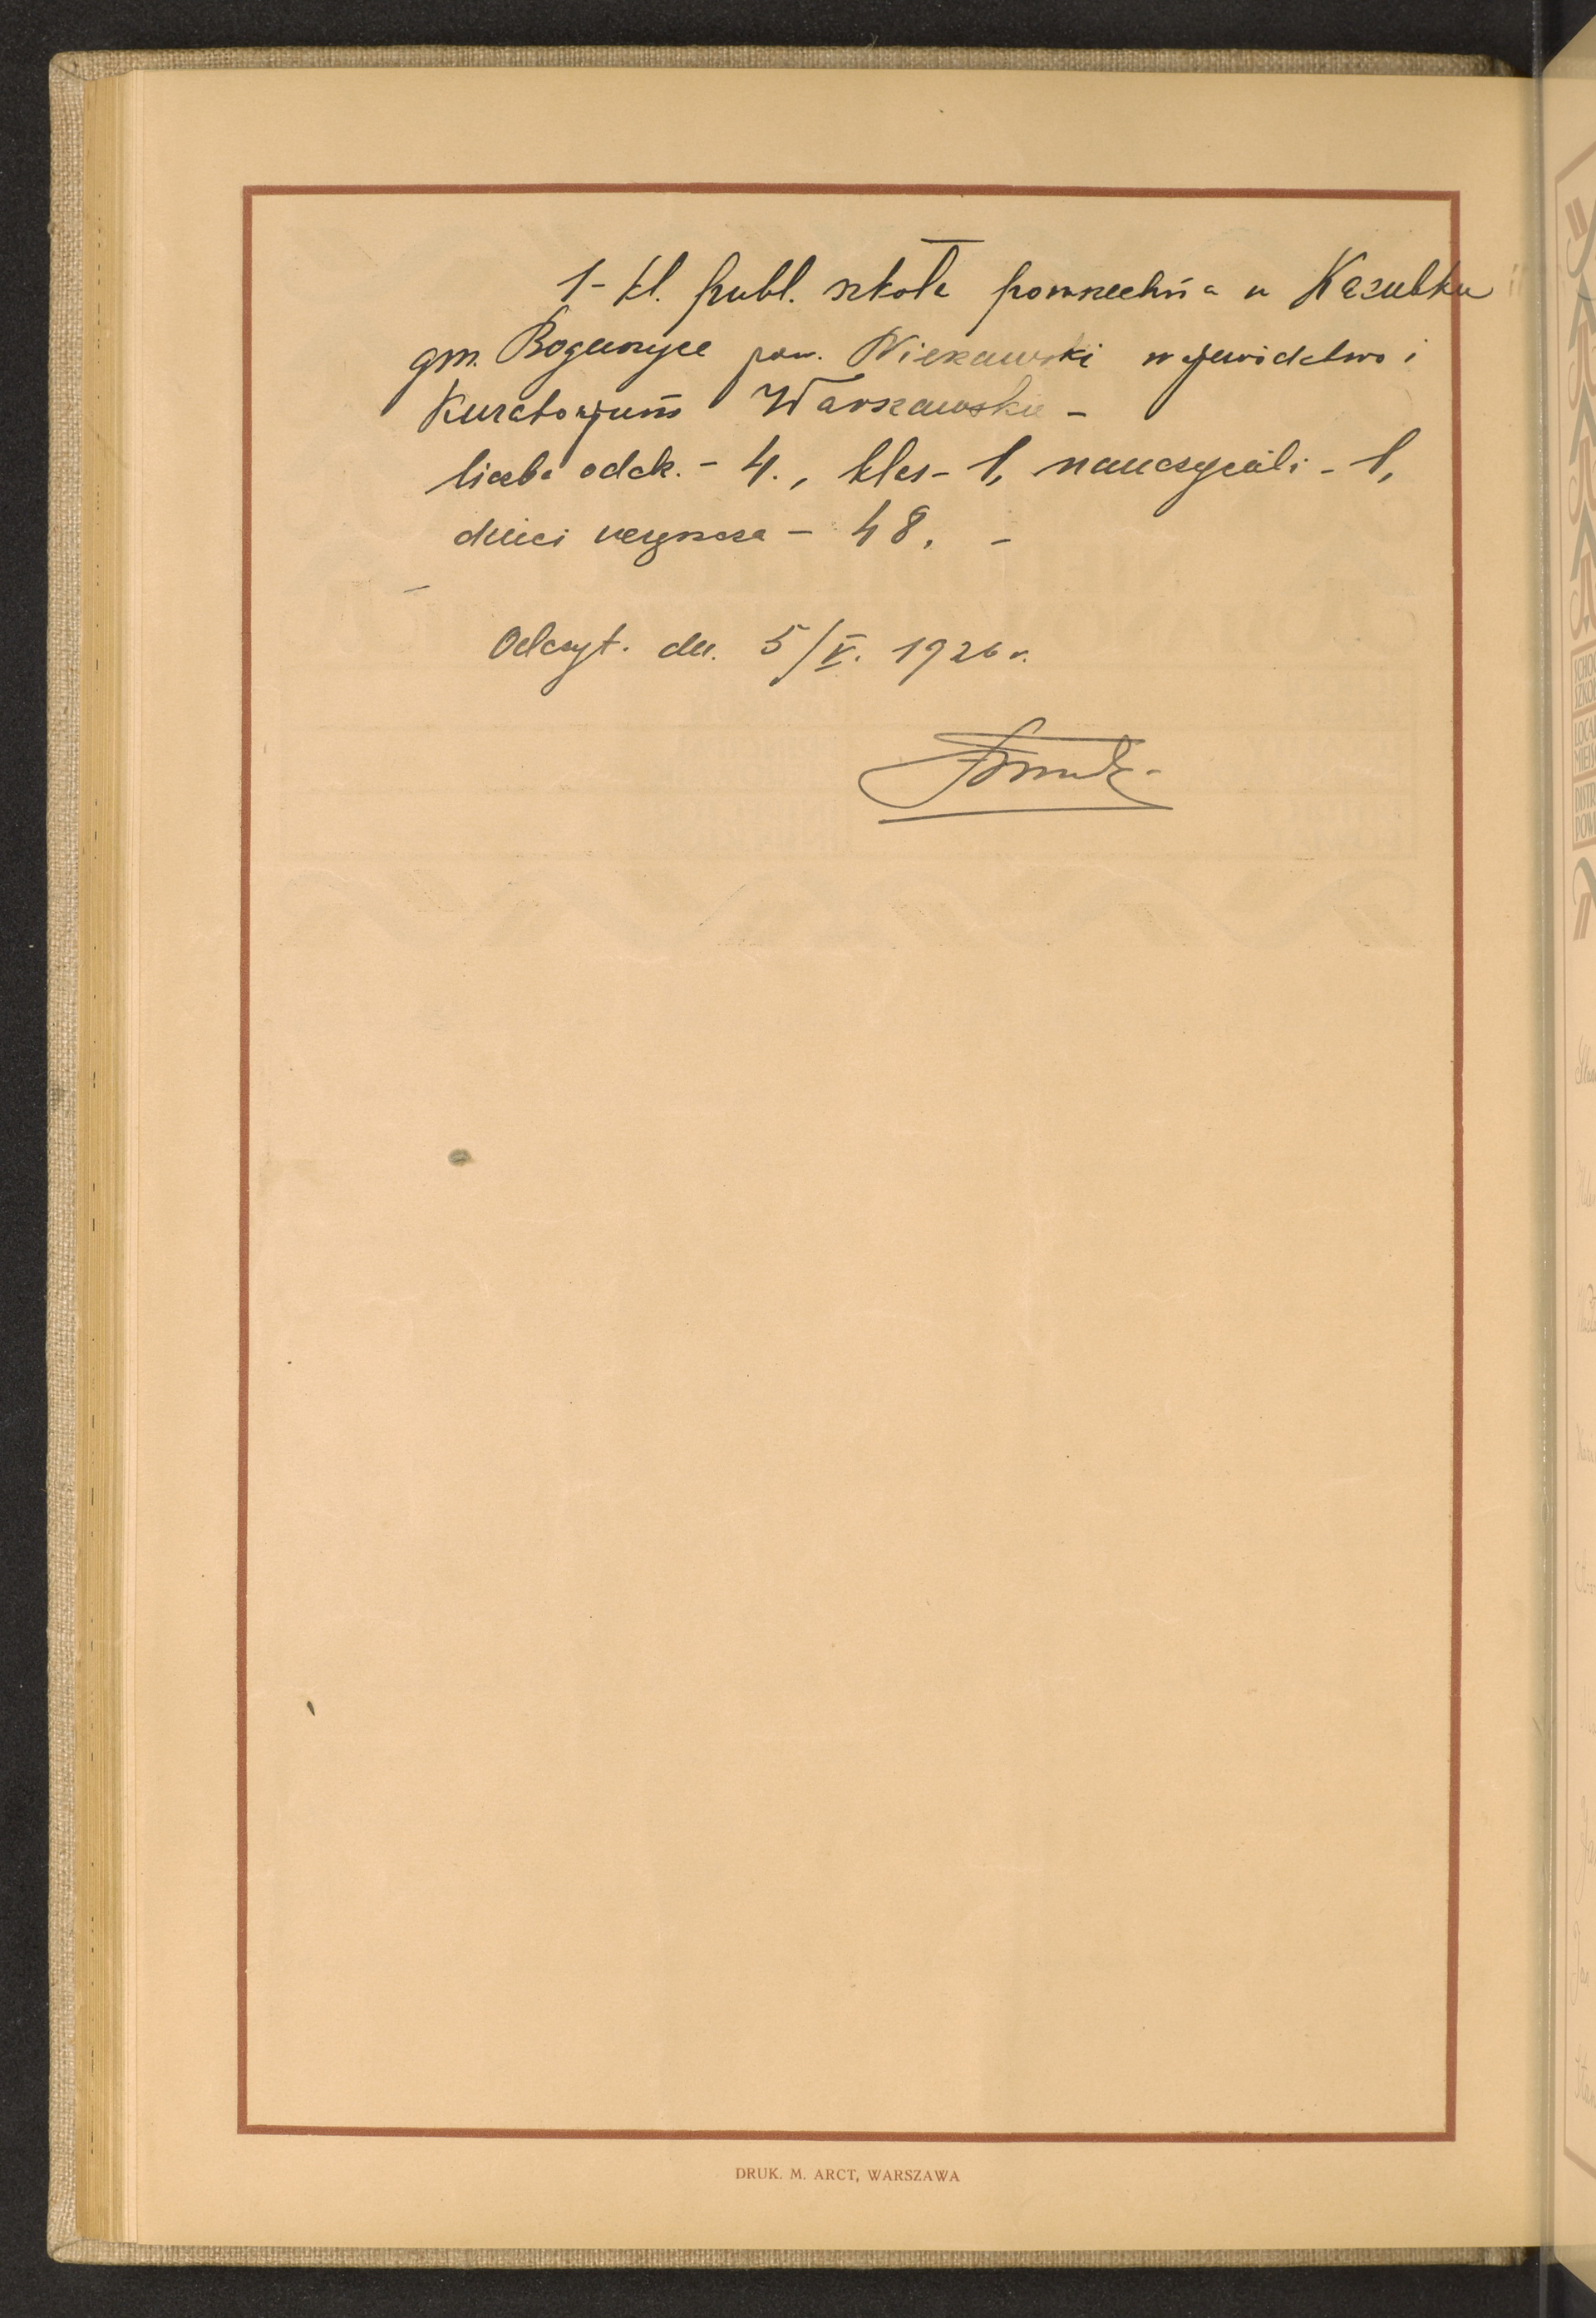 1-kl. publ. szkoła powszechna w Kaszubku
gm. Boguszyce pow. Nieszawski województwo i
Kuratorjum Warszawskie -
liczba oddz. - 4., klas - 1, nauczycieli - 1,
dzieci uczęszcza - 48. -
Odczyt. dn. 5/V. 1926 r.
DRUK. M. ARCT, WARSZAWA